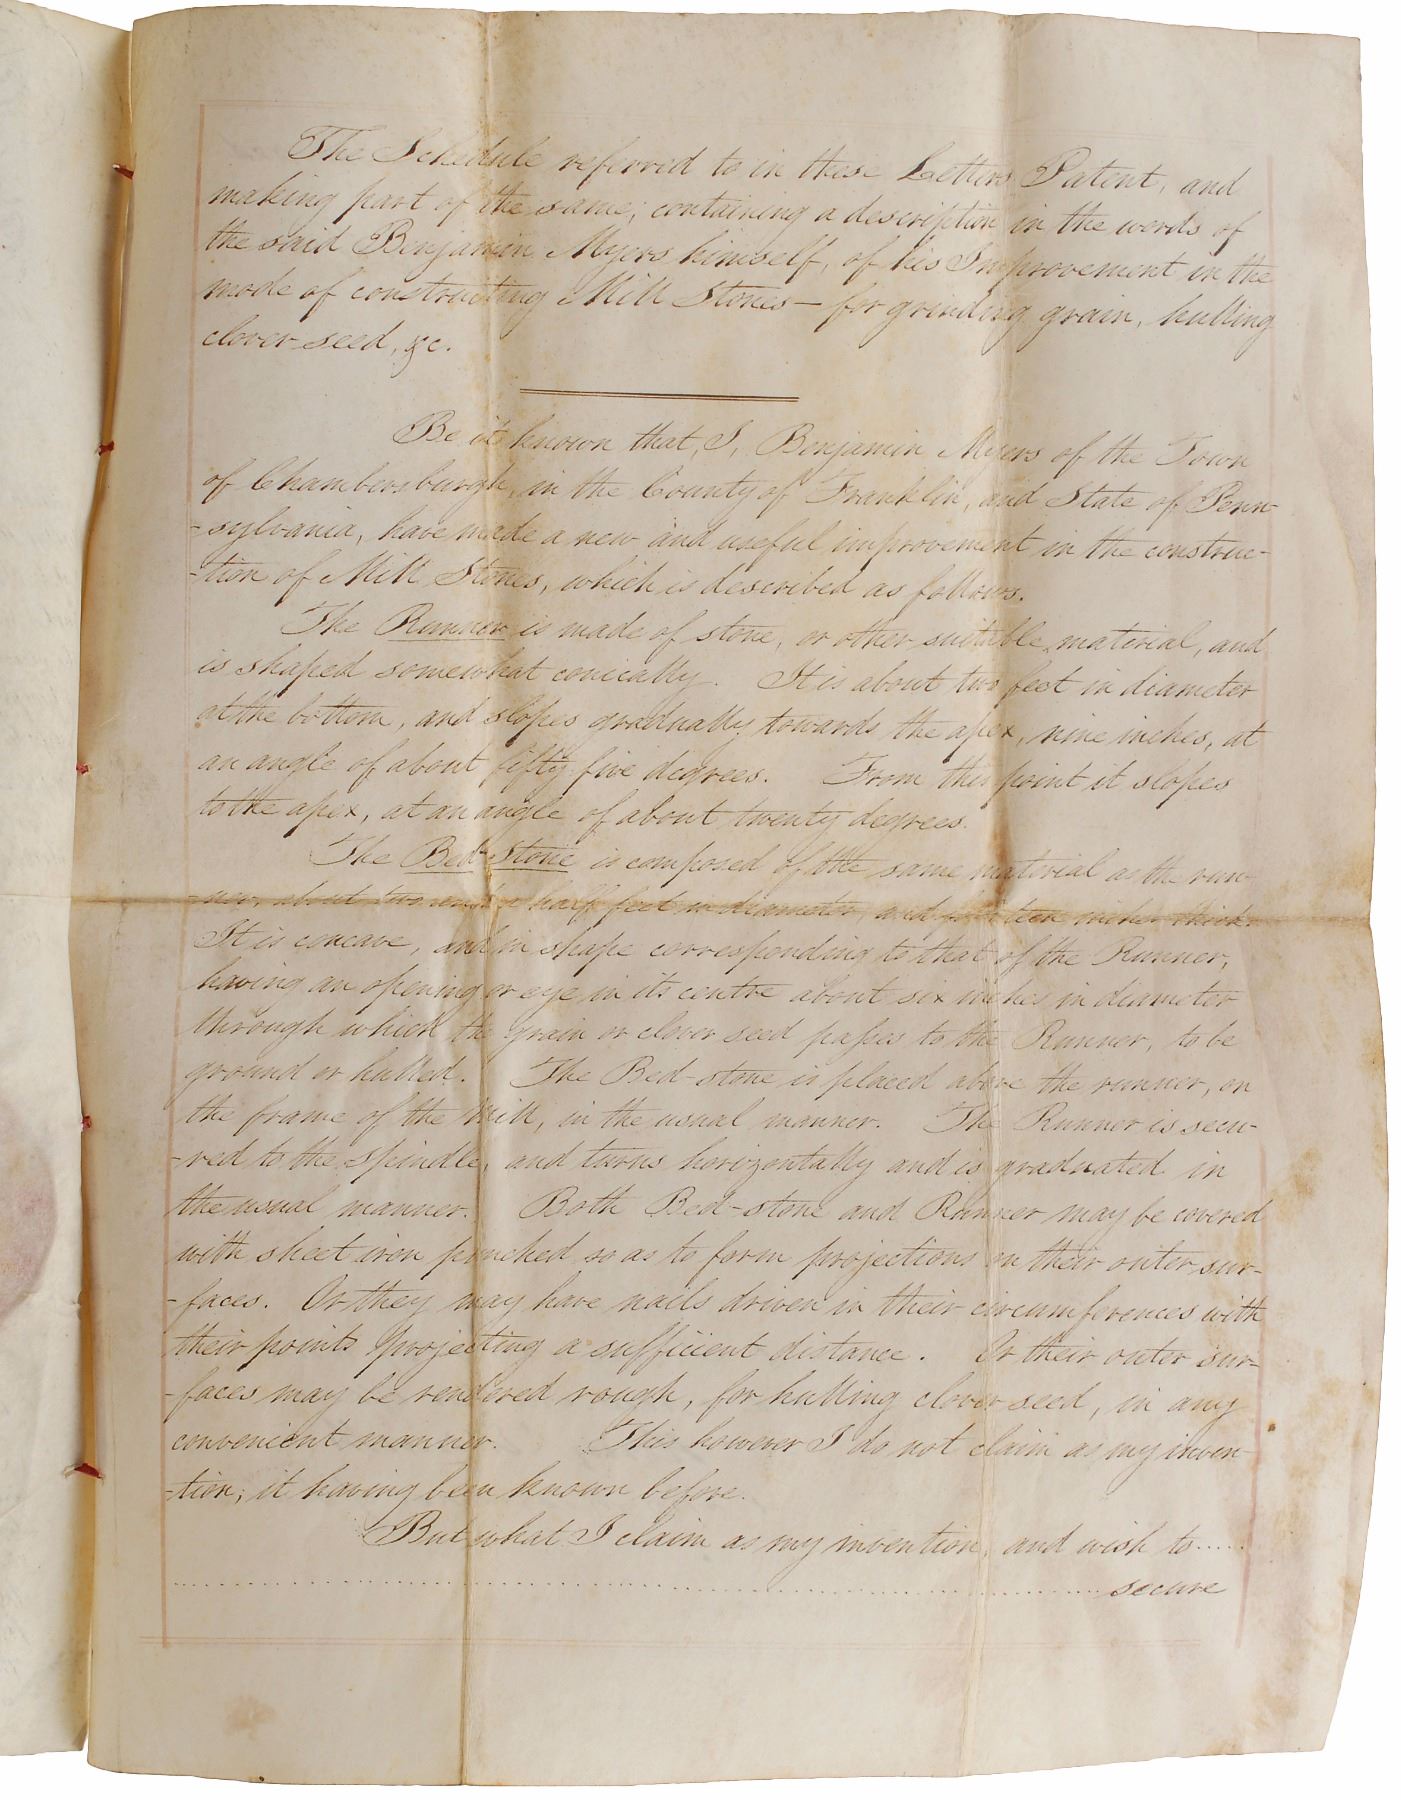 The Schedule referred to in these Letters Patent, and
making part of the same; containing a description in the words of
the said Benjamin Myers himself, of his Improvement in the
mode of constructing Mill Stones – for grinding grain, hulling
clover seed, &c.
Be it known that, I, Benjamin Myers of the Town
of Chambersburgh, in the County of Franklin, and State of Penn-
-sylvania, have made a new and useful improvement in the construc-
-tion of Mill Stones, which is described as follows.
The Runner is made of stone, or other suitable material, and
is shaped somewhat conically. It is about two feet in diameter
at the bottom, and slopes gradually towards the apex, nine inches, at
an angle of about fifty five degrees. From this point it slopes
to the apex, at an angle of about twenty degrees.
The Bed-Stone is composed of the same material as the run-
-ner, about two and a half feet in diameter, and fourteen inches thick.
It is concave, and in shape corresponding to that of the Runner,
having an opening or eye in its centre about six inches in diameter
through which the grain or clover seed passes to the Runner, to be
ground or hulled. The Bed-stone is placed above the runner, on
the frame of the Mill, in the usual manner. The Runner is secu-
-red to the spindle, and turns horizontally and is graduated in
the usual manner. Both Bed-stone and Runner may be covered
with sheet iron punched so as to form projections on their outer sur-
-faces. Or they may have nails driven in their circumferences with
their points projecting a sufficient distance. Or their outer sur-
-faces may be rendered rough, for hulling clover seed, in any
convenient manner. This however I do not claim as my inven-
-tion; it having been known before.
But what I claim as my invention, and wish to.....
secure